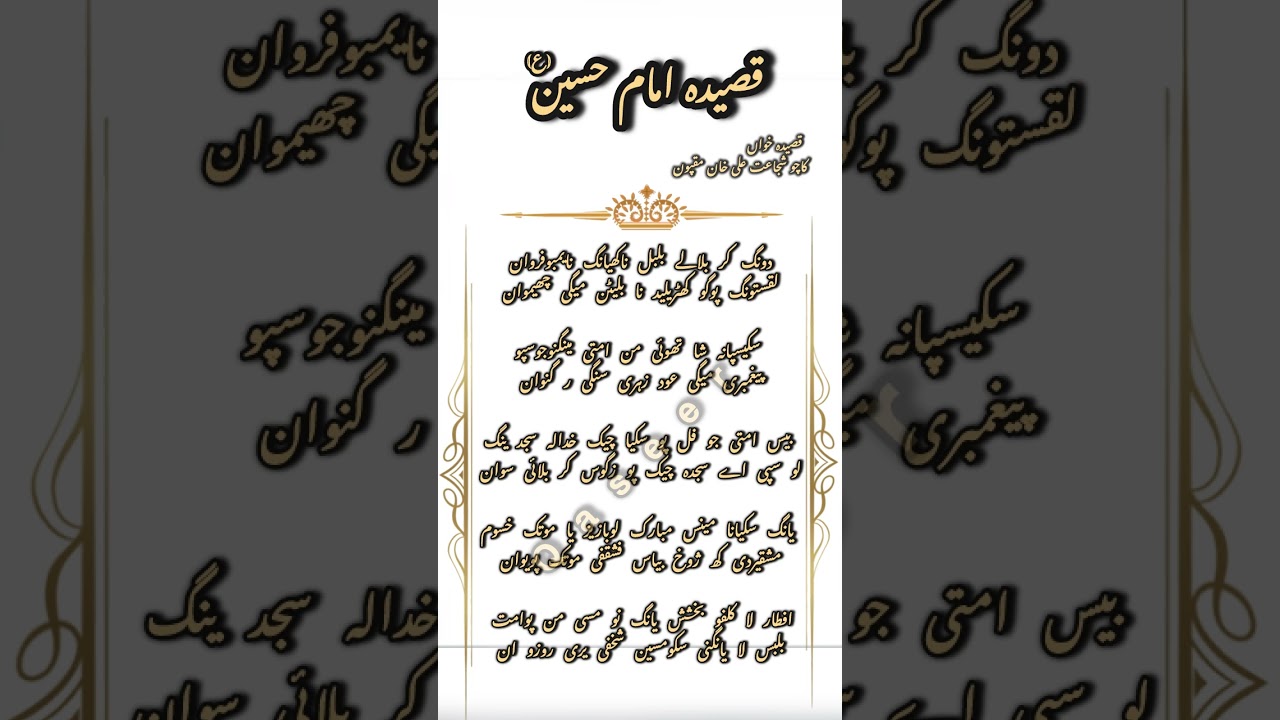 قصیدہ امام حسین (ع)
قصیدہ خواں
کاچو شجاعت علی خان مقپون
دونگ کر بلالے بلبل ناکھیانگ نایمبوفروان
لقستونگ پوگو کھڑیلید نا بلیٹن میگی چھیموان
سکیسپانہ شا تھوئی من امتی مینگنوجوسپو
پیغمبری میگی عود زہری سنگی ر گنوان
بیس امتی جو فل پو سکیا چیک خدالہ سجد ینگ
لو سپی اے سجدہ چیک پو زگوس کر بلائی سوان
یانگ سکیانا مینس مبارک لوبازیز یا موتک خسوم
مشقیردی کھ ژوخ بیاس فشقفی موتک پویوان
افطار لا کلفو بخشش یانگ نو مسی من پوامت
بلبس لا یانگنی سکومسین شخفی بری روزو ان
Qaseer